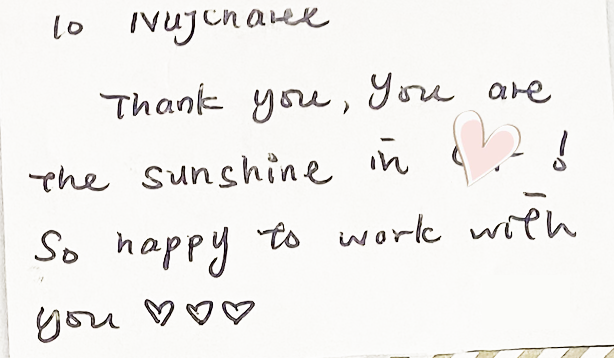 To
Thank you, You are
the sunshine in !
So happy to work with
you ♡♡♡